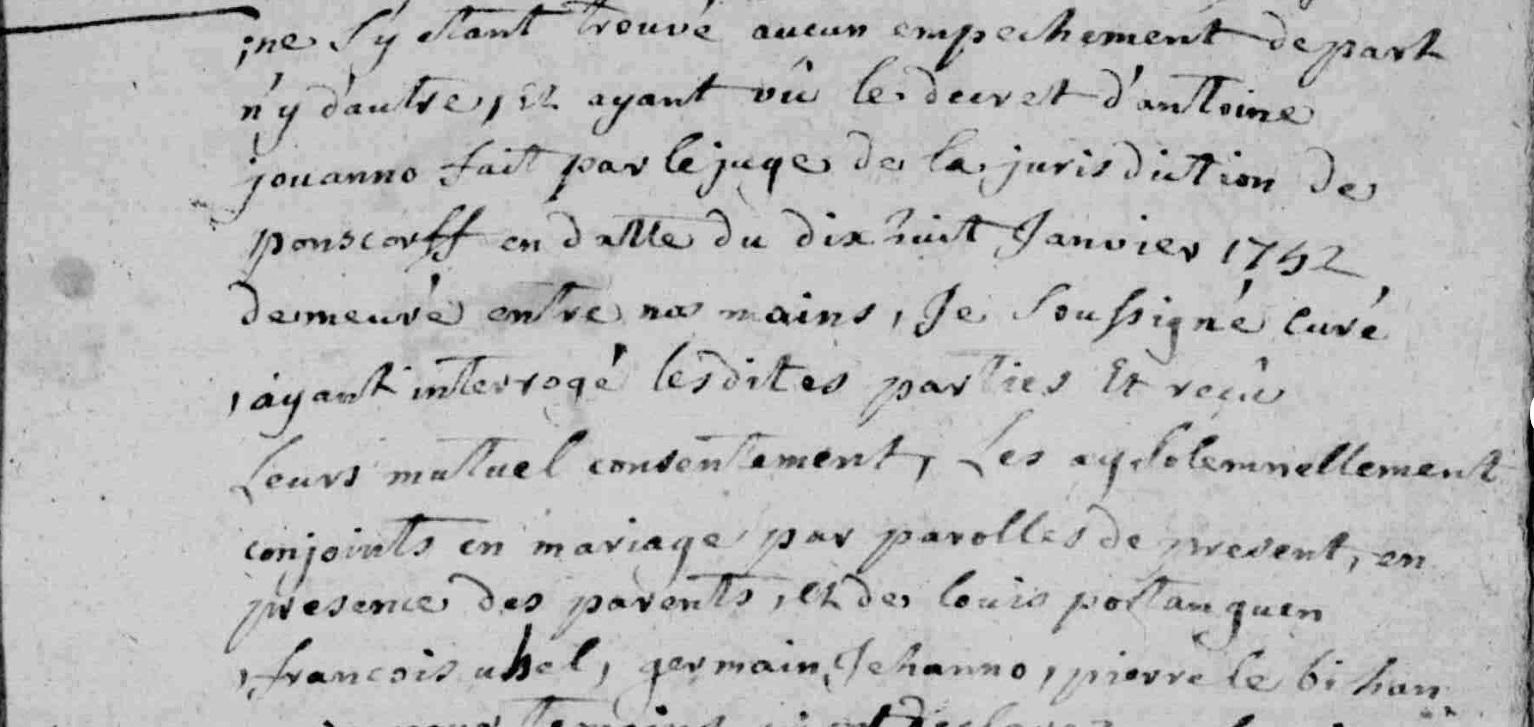 ne s'y étant trouvé aucun empechement de part
n'y d'autre, Et ayant vû le decret d'antoine
jouanno fait par le juge de la jurisdiction de
ponscorff en datte du dix huit Janvier 1752
demeuré entre nos mains, Je soussigné curé
, ayant interrogé lesdites parties Et reçu
Leurs mutuel consentement, Les ay solemnellement
conjoints en mariage par parolles de present, en
presence des parents, et de louis postanguen
, francois uhel, germain Jehanno, pierre le bihan
temoins